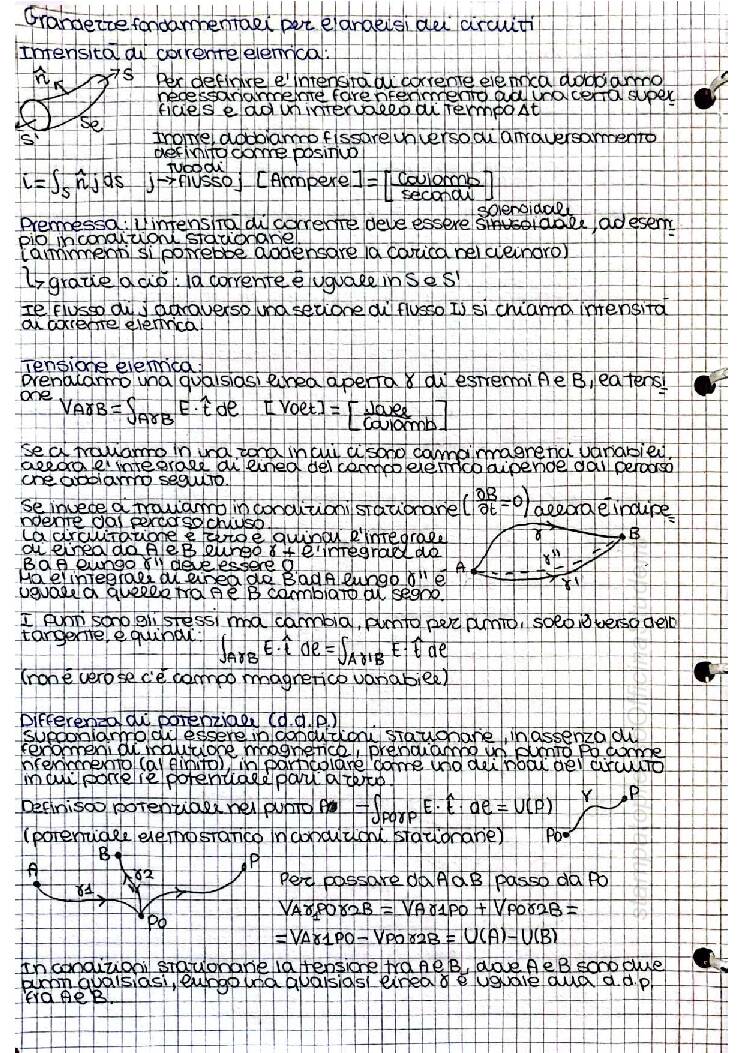 Grandezze fondamentali per l'analisi dei circuiti
Intensità di corrente elettrica:
n̂ S
Per definire l'intensità di corrente elettrica dobbiamo
necessariamente fare riferimento ad una certa super
ficie S e ad un intervallo di tempo Δt
S' Se
Inoltre, dobbiamo fissare un verso di attraversamento
definito come positivo
tubo di
i = ∫S n̂ j ds j → flusso j [Ampere] = [Coulomb/secondi]
solenoidale
Premessa: L'intensità di corrente deve essere sinusoidale, ad esem
pio in condizioni stazionarie
(altrimenti si potrebbe addensare la carica nel cilindro)
↳ grazie a ciò: la corrente è uguale in S e S'
Il flusso di j attraverso una sezione di flusso IJ si chiama intensità
di corrente elettrica.
Tensione elettrica:
Prendiamo una qualsiasi linea aperta γ di estremi A e B, la tensi
one VAγB = ∫AγB E · t̂ dl [Volt] = [Joule/Coulomb]
Se ci troviamo in una zona in cui ci sono campi magnetici variabili,
allora l'integrale di linea del campo elettrico dipende dal percorso
che abbiamo seguito.
Se invece ci troviamo in condizioni stazionarie (∂B/∂t = 0) allora è indipe
ndente dal percorso chiuso.
La circuitazione è zero e quindi l'integrale
di linea da A e B lungo γ + l'integrale da
B a A lungo γ'' deve essere 0
Ma l'integrale di linea da B ad A lungo γ'' è
uguale a quello tra A e B cambiato di segno.
A γ γ'' γ' B
I punti sono gli stessi ma cambia, punto per punto, solo il verso della
tangente, e quindi: ∫AγB E · t̂ dl = ∫Aγ'B E · t̂ dl
(non è vero se c'è campo magnetico variabile)
Differenza di potenziale (d.d.p.)
Supponiamo di essere in condizioni stazionarie, in assenza di
fenomeni di induzione magnetica, prendiamo un punto Po come
riferimento (al finito), in particolare come uno dei nodi del circuito
in cui porre il potenziale pari a zero.
Definisco potenziale nel punto P -∫PoγP E · t̂ · dl = U(P)
Po γ P
(potenziale elettrostatico in condizioni stazionarie)
A γ1 B γ2 Po P
Per passare da A a B passo da Po
VAγ1Poγ2B = VAγ1Po + VPoγ2B =
= VAγ1Po - VPoγ2B = U(A) - U(B)
In condizioni stazionarie la tensione tra A e B, dove A e B sono due
punti qualsiasi, lungo una qualsiasi linea γ è uguale alla d.d.p.
fra A e B.